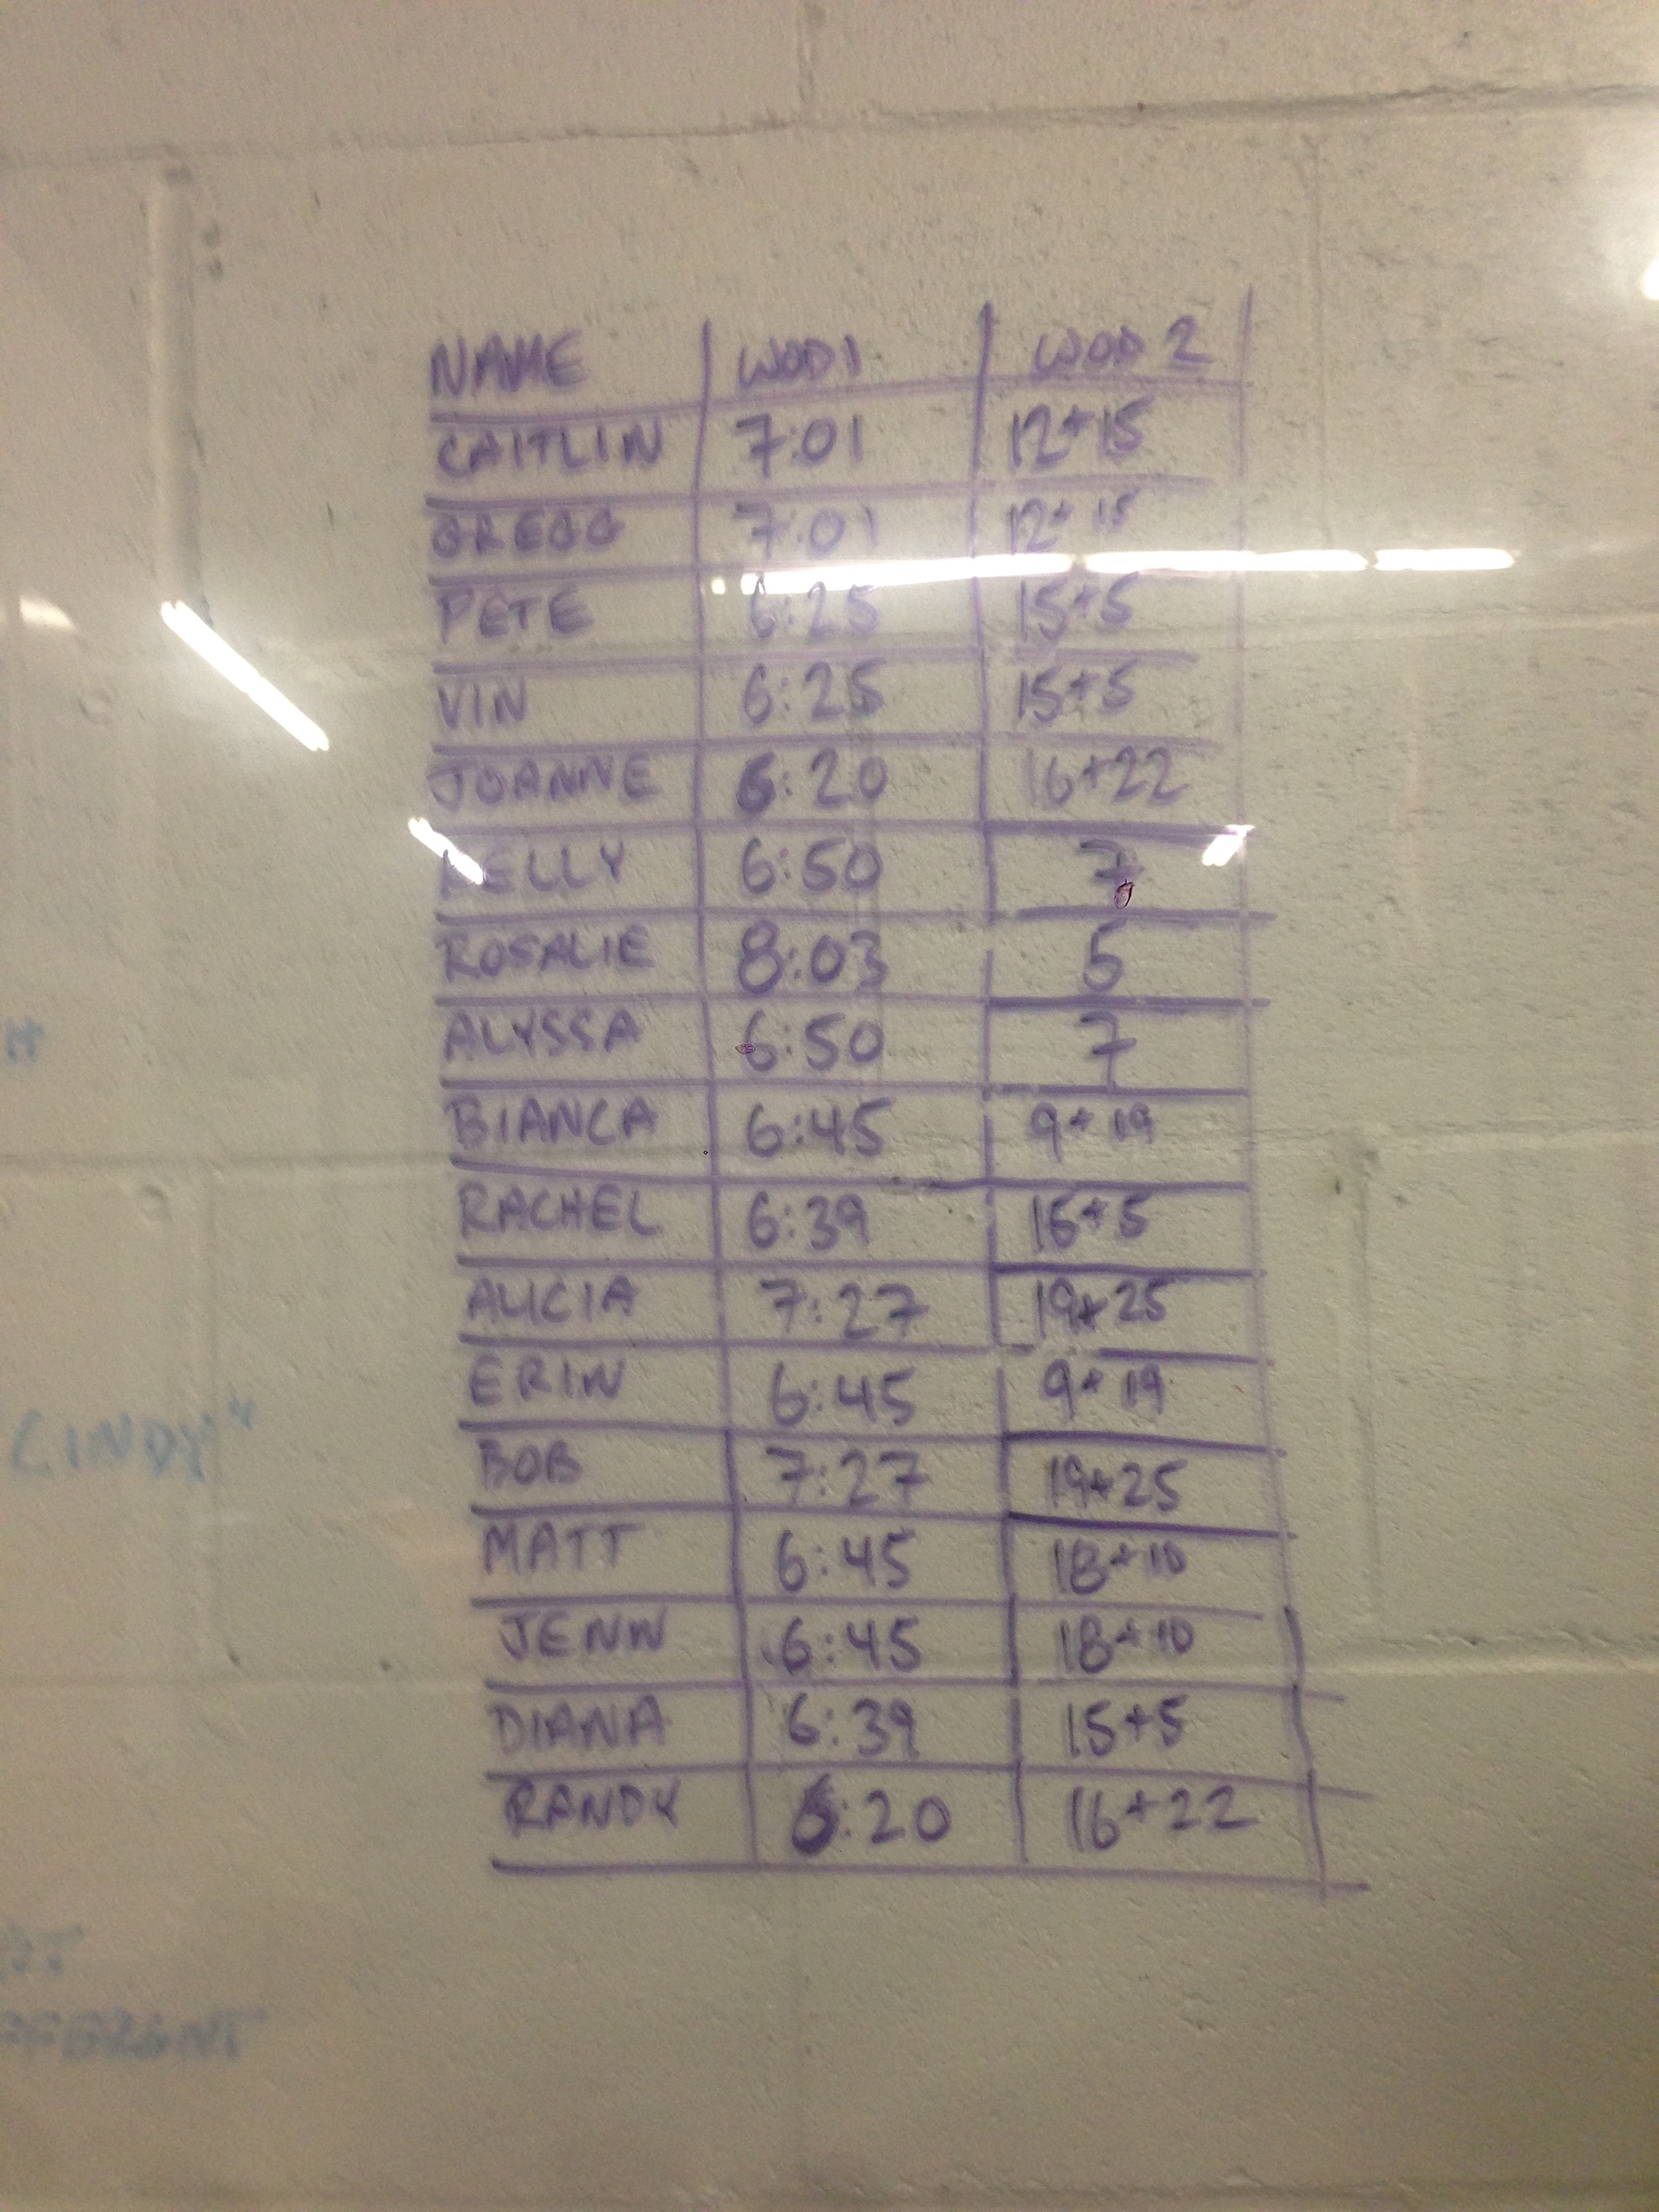 NAME WOD1 WOD 2
CAITLIN 7:01 12+15
GREGG 7:01 12+15
PETE 6:25 15+5
VIN 6:25 15+5
JOANNE 6:20 16+22
KELLY 6:50 7
ROSALIE 8:03 5
ALYSSA 6:50 7
BIANCA 6:45 9+19
RACHEL 6:39 15+5
ALICIA 7:27 19+25
ERIN 6:45 9+19
BOB 7:27 19+25
MATT 6:45 18+10
JENN 6:45 18+10
DIANA 6:39 15+5
RANDY 6:20 16+22
CINDY"